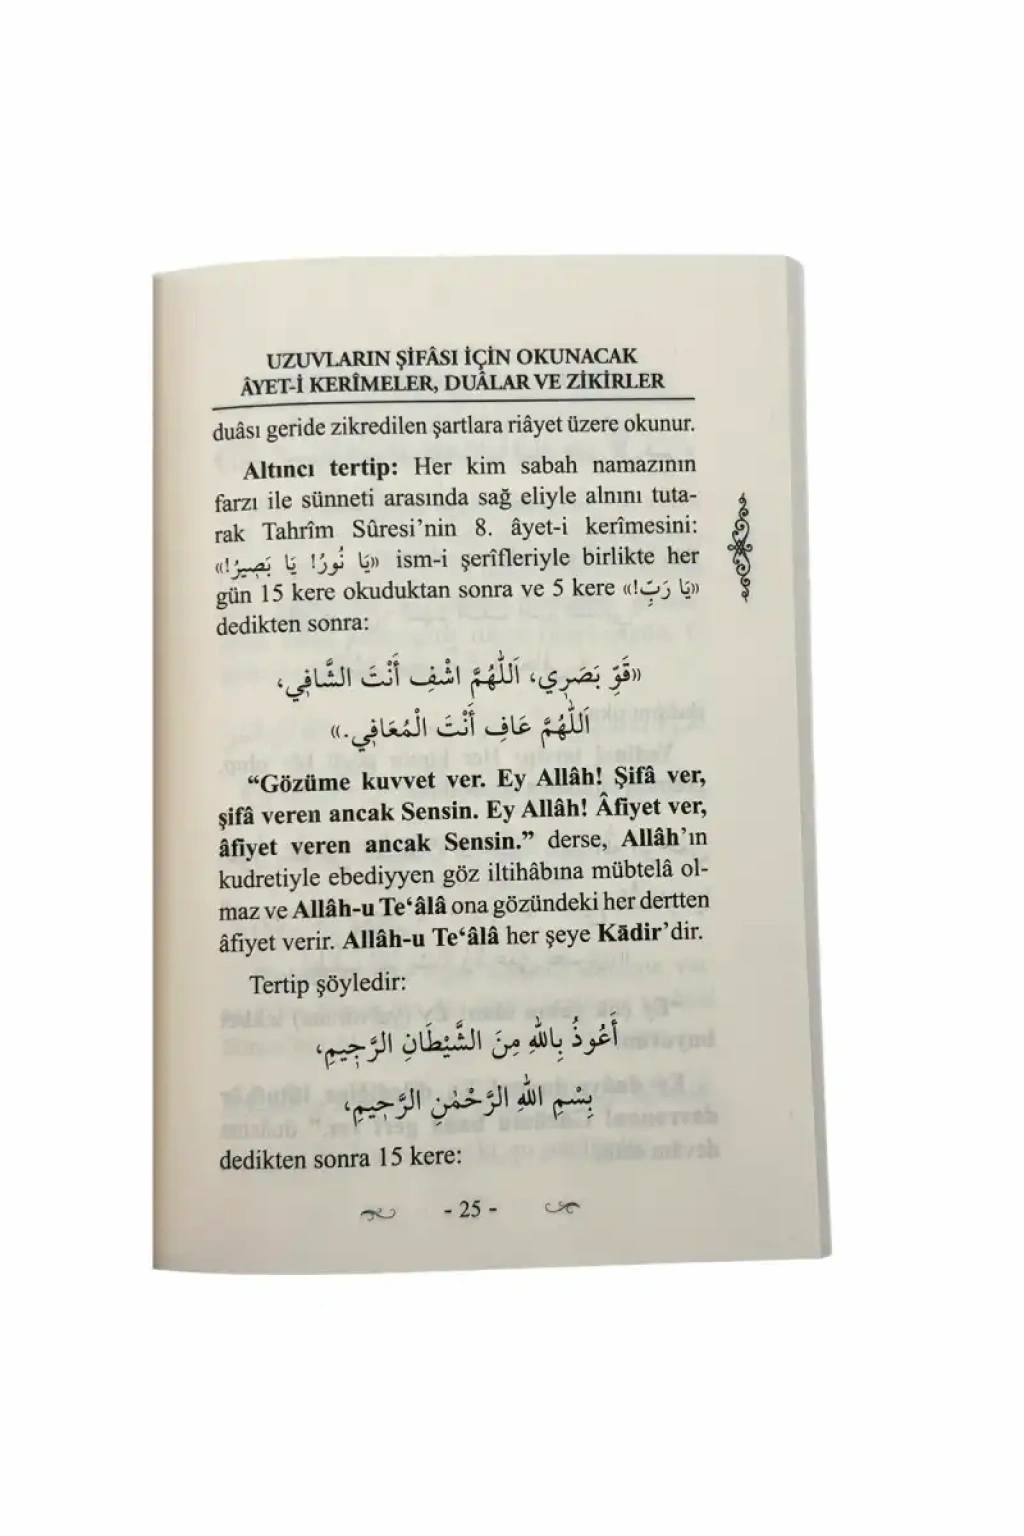 UZUVLARIN ŞİFÂSI İÇİN OKUNACAK
ÂYET-İ KERÎMELER, DUÂLAR VE ZİKİRLER
duâsı geride zikredilen şartlara riâyet üzere okunur.
Altıncı tertip: Her kim sabah namazının
farzı ile sünneti arasında sağ eliyle alnını tuta-
rak Tahrîm Sûresi’nin 8. âyet-i kerîmesini:
«يَا نُورُ! يَا بَصِيرُ!» ism-i şerîfleriyle birlikte her
gün 15 kere okuduktan sonra ve 5 kere «يَا رَبِّ!»
dedikten sonra:
«قَوِّ بَصَرِي، اَللّٰهُمَّ اشْفِ أَنْتَ الشَّافِي،
اَللّٰهُمَّ عَافِ أَنْتَ الْمُعَافِي.»
“Gözüme kuvvet ver. Ey Allâh! Şifâ ver,
şifâ veren ancak Sensin. Ey Allâh! Âfiyet ver,
âfiyet veren ancak Sensin.” derse, Allâh’ın
kudretiyle ebediyyen göz iltihâbına mübtelâ ol-
maz ve Allâh-u Te‘âlâ ona gözündeki her dertten
âfiyet verir. Allâh-u Te‘âlâ her şeye Kādir’dir.
Tertip şöyledir:
أَعُوذُ بِاللّٰهِ مِنَ الشَّيْطَانِ الرَّجِيمِ،
بِسْمِ اللّٰهِ الرَّحْمٰنِ الرَّحِيمِ،
dedikten sonra 15 kere:
- 25 -